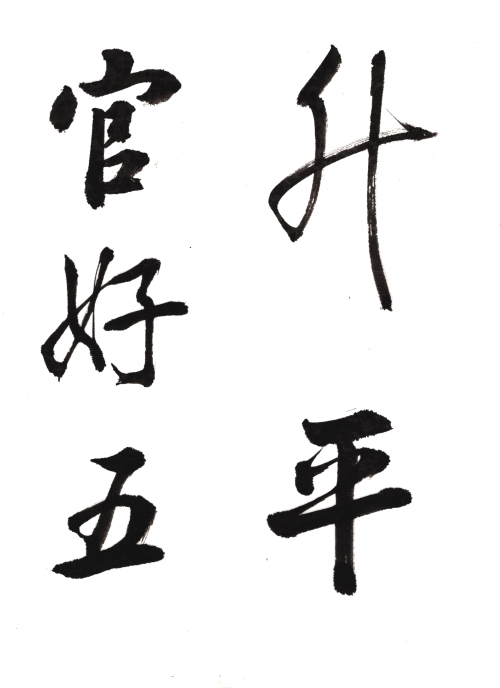 升平
官好五